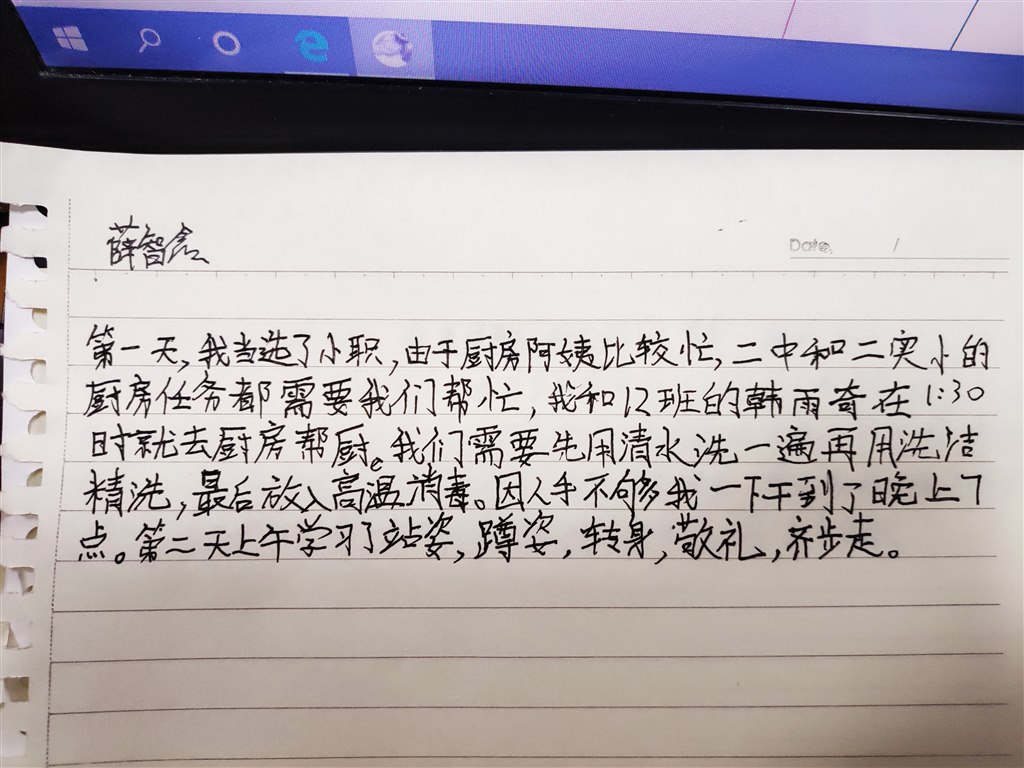 薛智含
Date. /
第一天,我当选了小职,由于厨房阿姨比较忙,二中和二实小的
厨房任务都需要我们帮忙,我和12班的韩雨奇在1:30
时就去厨房帮厨。我们需要先用清水洗一遍再用洗洁
精洗,最后放入高温消毒。因人手不够多我一下干到了晚上7
点。第二天上午学习了站姿,蹲姿,转身,敬礼,齐步走。